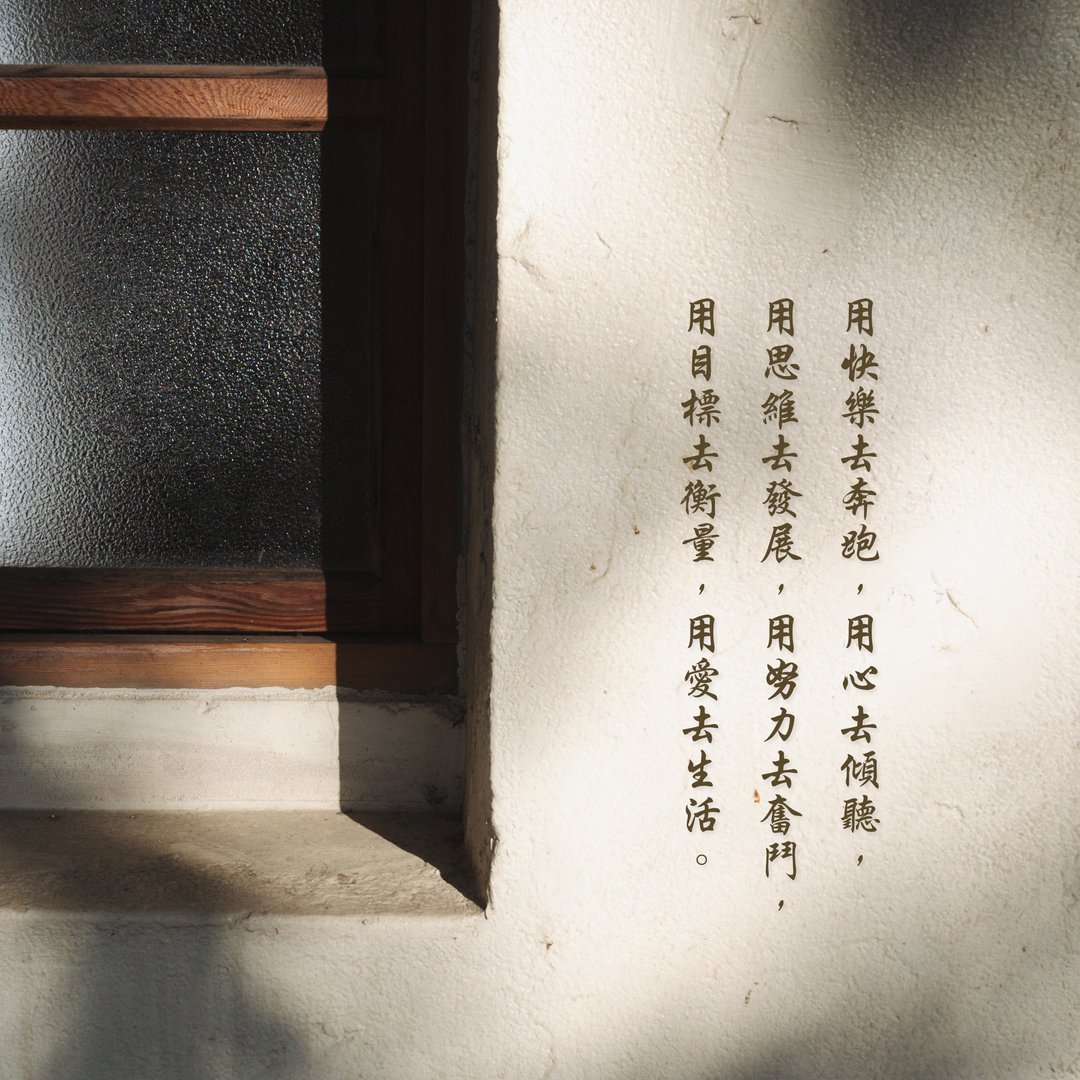 用快樂去奔跑，用心去傾聽，
用思維去發展，用努力去奮鬥，
用目標去衡量，用愛去生活。